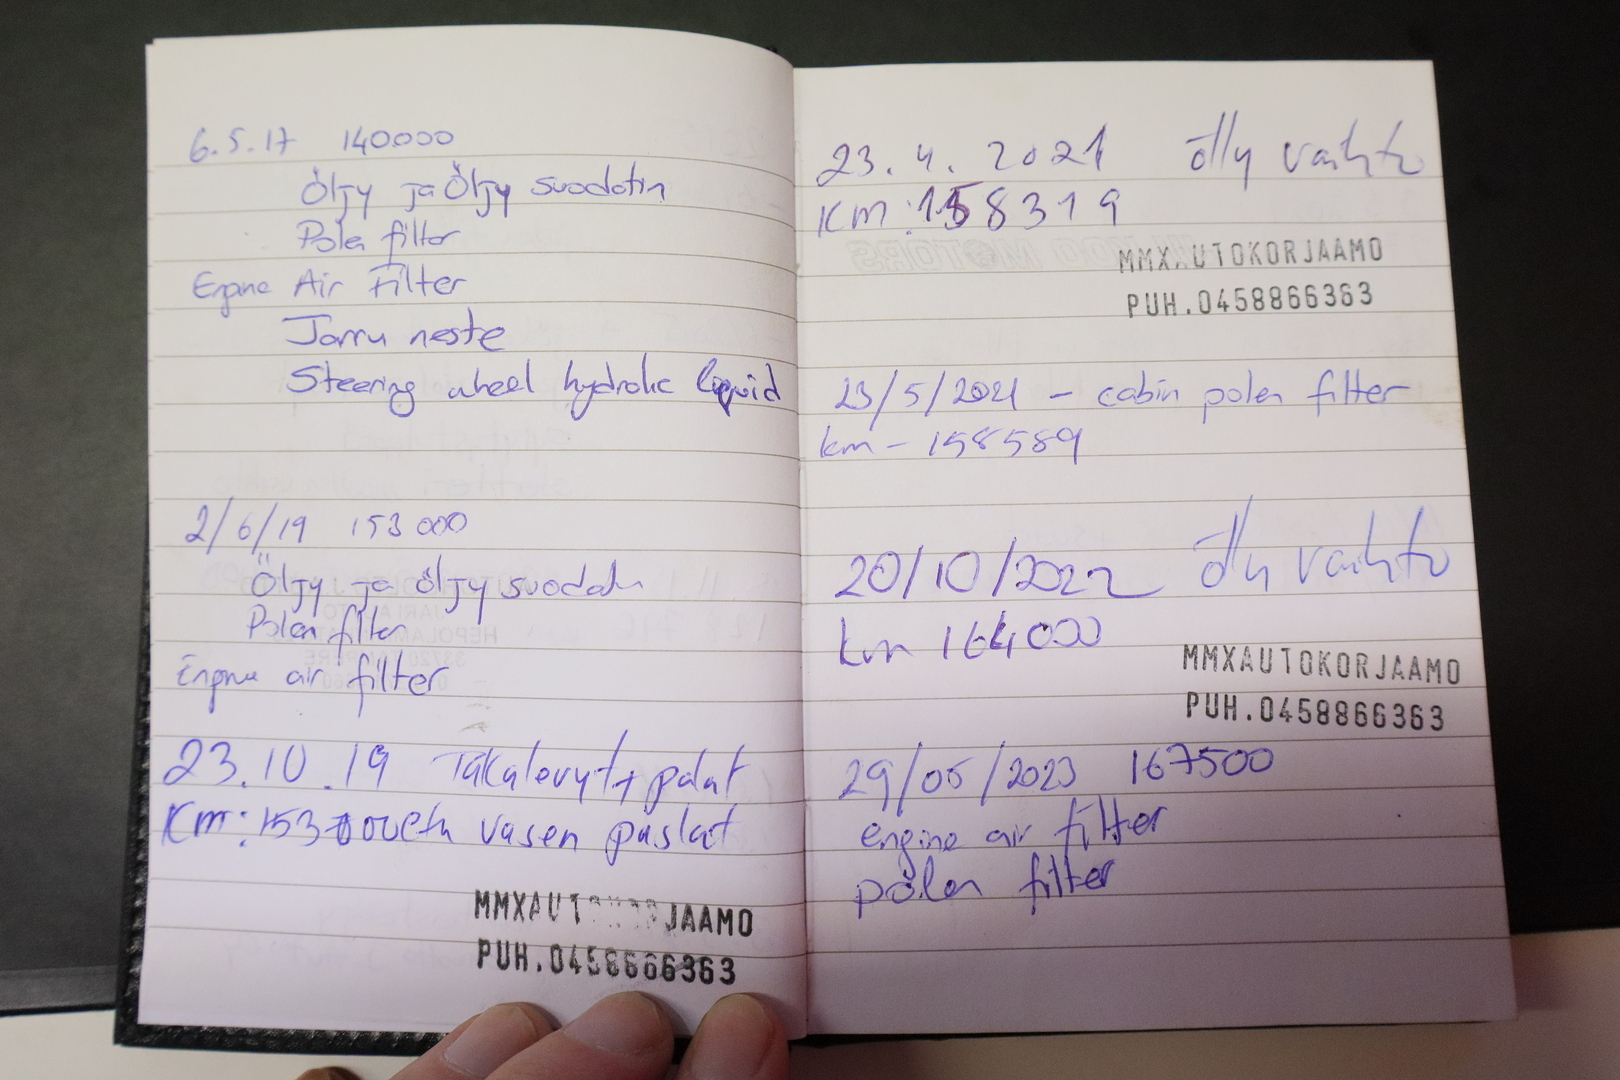 6.5.17 140000
Öljy ja Öljy suodatin
Polen filter
Engine Air Filter
Jarru neste
Steering wheel hydrolic liquid
2/6/19 153 000
Öljy ja öljy suodatin
Polen filter
Engine air filter
23.10.19 Takalevyt + palat
Km: 153 vasen puslat
MMXAUT JAAMO
PUH.0458866363
23.4.2021 öljy vaihto
KM: 158319
MMXAUTOKORJAAMO
PUH.0458866363
23/5/2021 - cabin polen filter
km - 158589
20/10/2022 öljy vaihto
km 164000
MMXAUTOKORJAAMO
PUH.0458866363
29/05/2023 167500
engine air filter
polen filter